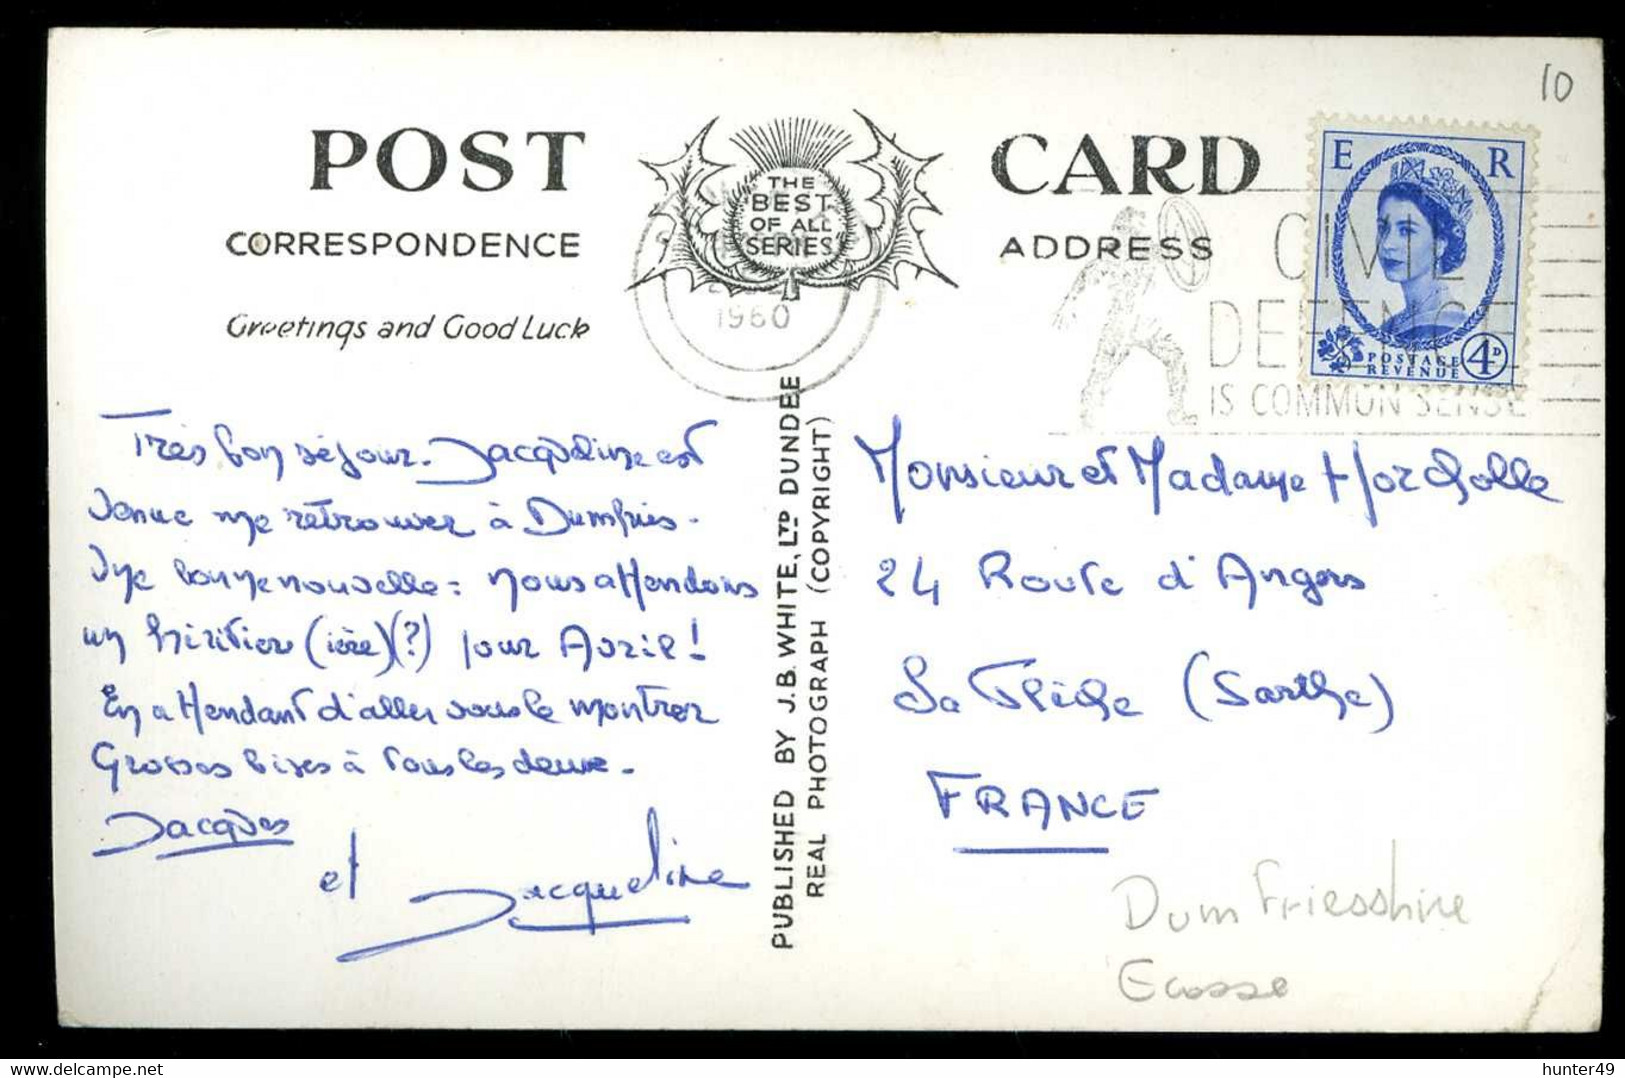 10
POST CARD
THE
BEST
OF ALL
SERIES
CORRESPONDENCE
ADDRESS
Greetings and Good Luck
1960
CIVIL
DEFENCE
IS COMMON SENSE
E R
POSTAGE
REVENUE
4D
Très bon séjour. Jacqueline est
venue me retrouver à Dumfries.
Une bonne nouvelle : nous attendons
un héritier (ière)(?) pour Avril !
En attendant d'aller vous le montrer
Grosses bises à tous les deux.
Jacques
et Jacqueline
PUBLISHED BY J.B. WHITE, LTD DUNDEE
REAL PHOTOGRAPH (COPYRIGHT)
Monsieur et Madame Horcholle
24 Route d'Angers
La Flèche (Sarthe)
FRANCE
Dumfriesshire
Ecosse
delcampe.net
hunter49